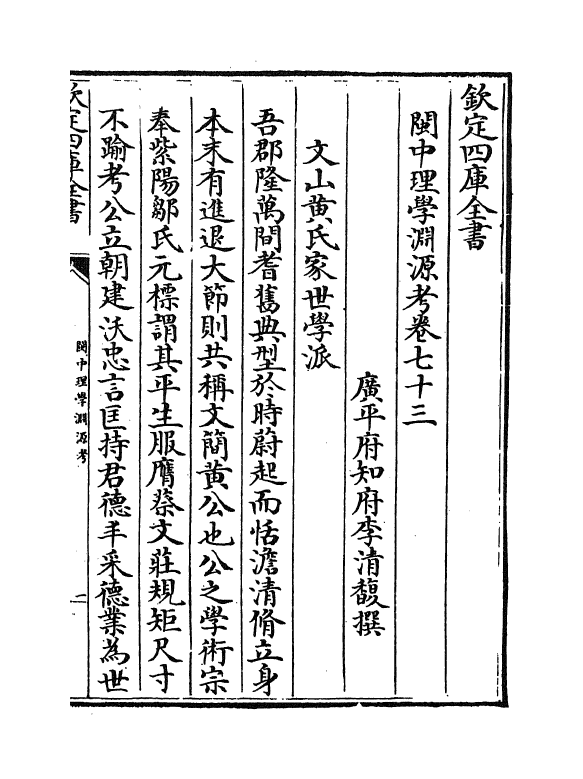 欽定四庫全書
閩中理學淵源考卷七十三
廣平府知府李清馥撰
文山黄氏家世學派
吾郡隆萬間耆舊典型於時蔚起而恬澹清脩立身
本末有進退大節則共稱文簡黄公也公之學術宗
奉紫陽鄒氏元標謂其平生服膺蔡文莊規矩尺寸
不踰考公立朝建沃忠言匡持君德丰采德業為世
欽定四庫全書
閩中理學淵源考